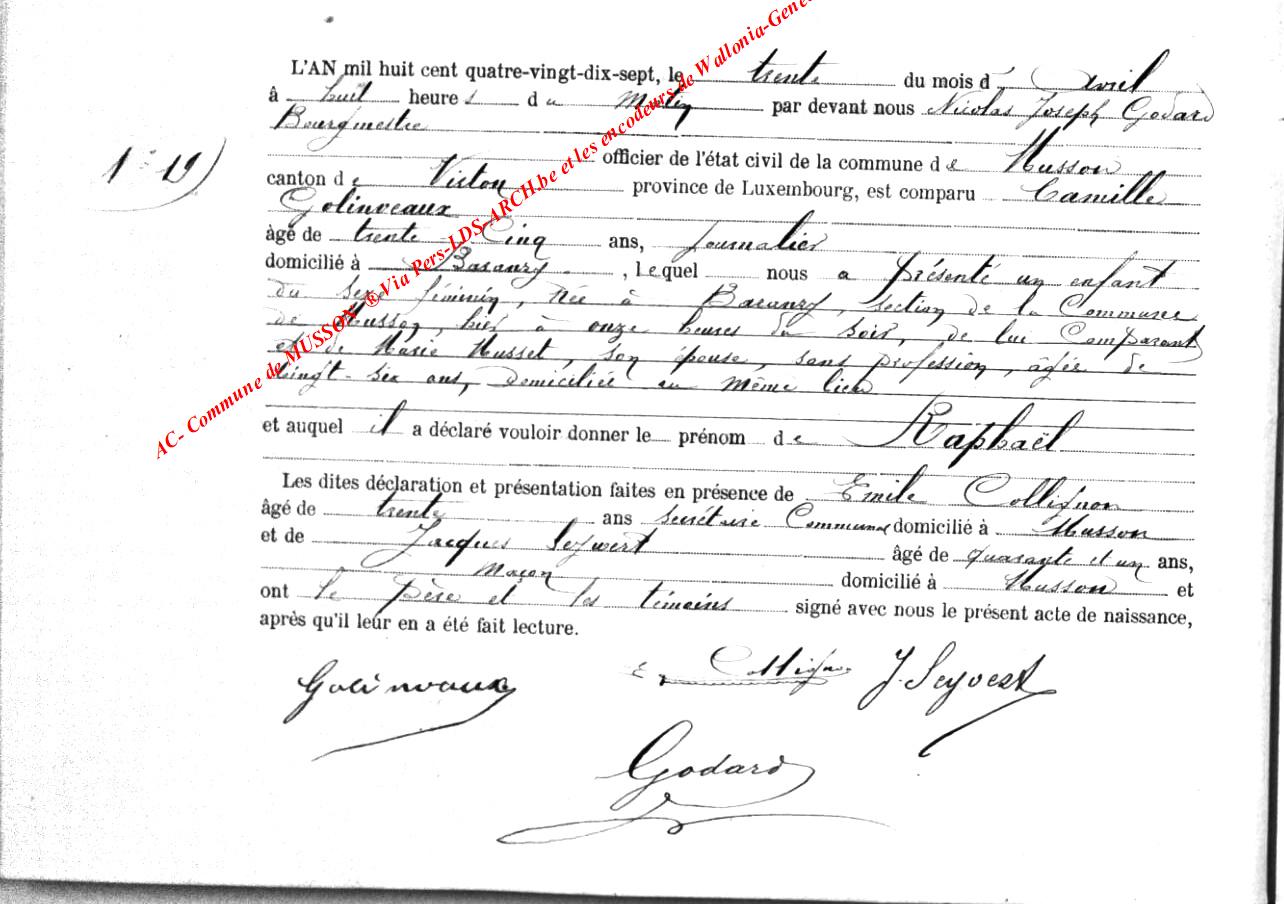 AC- Commune de MUSSON ® Via Pers-LDS-ARCH.be et les encodeurs de Wallonia-Gene
L'AN mil huit cent quatre-vingt-dix-sept, le trente du mois d' Avril
à huit heures du Matin par devant nous Nicolas Joseph Godard
Bourgmestre
19)
officier de l'état civil de la commune de Musson
canton de Virton province de Luxembourg, est comparu Camille
Golinveaux
âgé de trente Cinq ans, Journalier
domicilié à Baranzy, lequel nous a présenté un enfant
du sexe féminin, née à Baranzy, section de la Commune
de Musson, hier à onze heures du soir, de lui Comparant
et de Marie Musset, son épouse, sans profession, âgée de
vingt-six ans, domiciliée au même lieu
et auquel il a déclaré vouloir donner le prénom de Raphaël
Les dites déclaration et présentation faites en présence de Emile Collignon
âgé de trente ans secrétaire Communal domicilié à Musson
et de Jacques Seywert âgé de quarante et un ans,
Maçon domicilié à Musson et
ont le père et les témoins signé avec nous le présent acte de naissance,
après qu'il leur en a été fait lecture.
Golinvaux E Collignon J. Seyvert
Godard